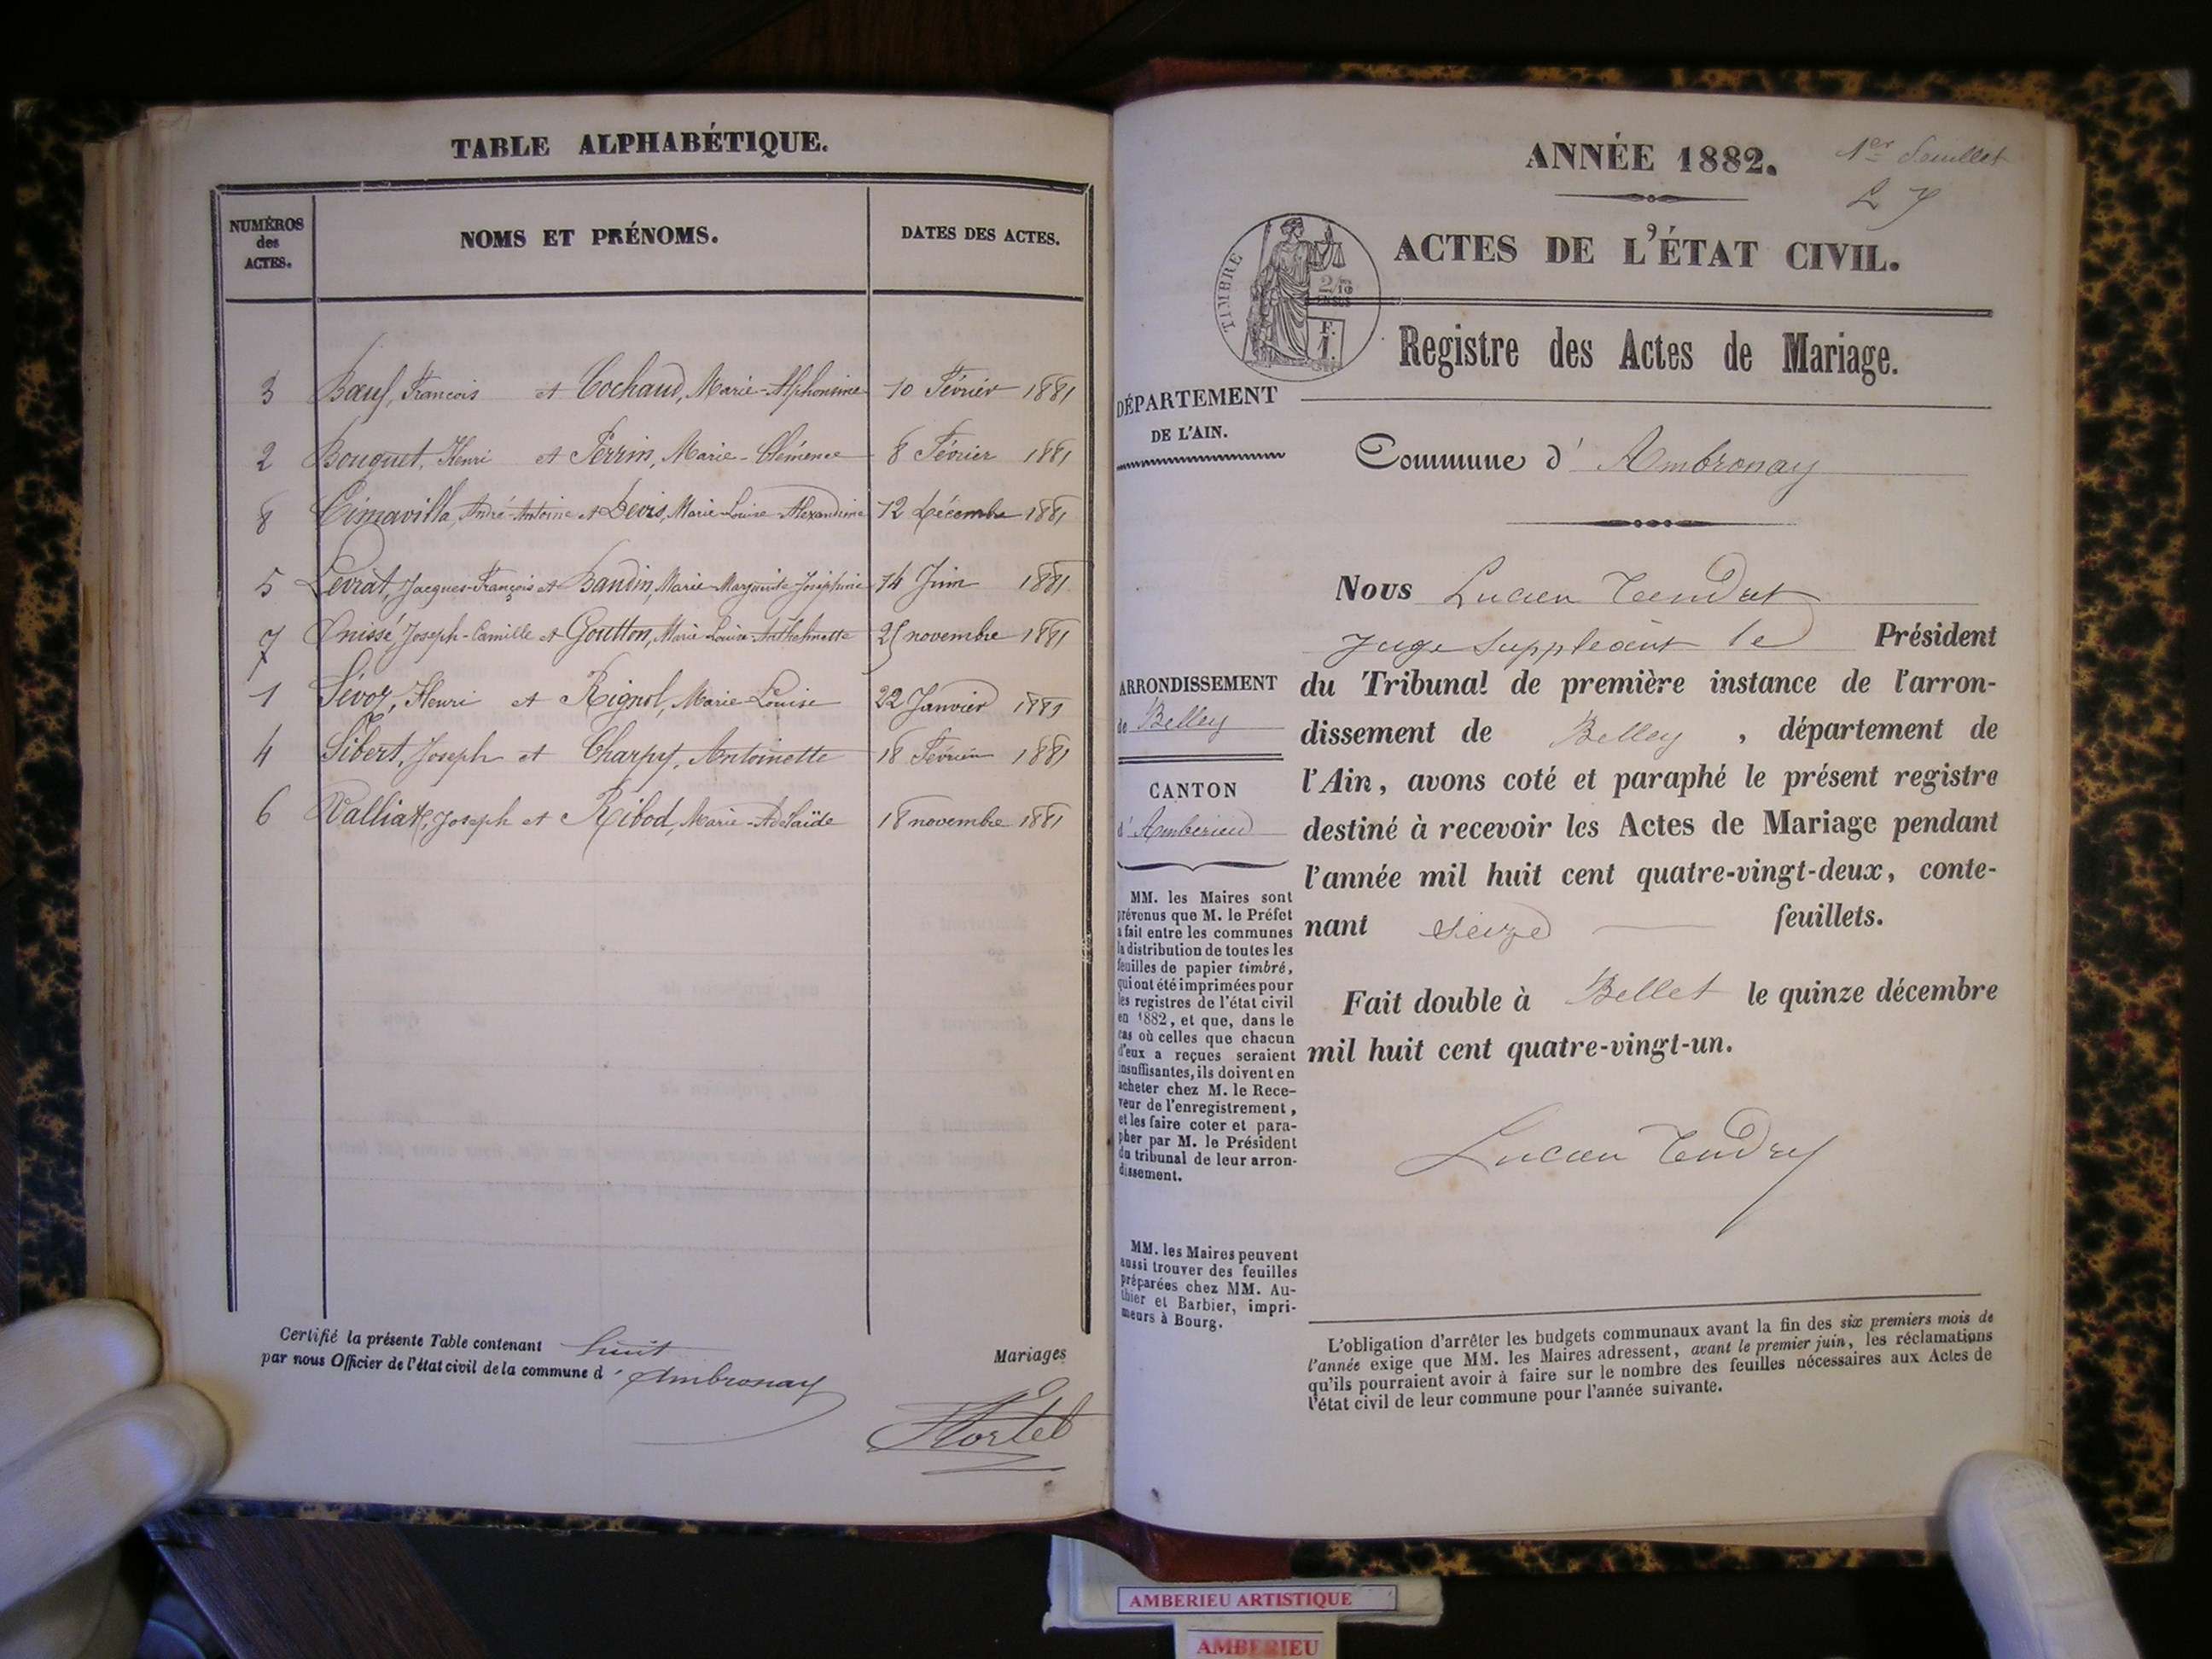 TABLE ALPHABÉTIQUE.
NUMÉROS des ACTES.
NOMS ET PRÉNOMS.
DATES DES ACTES.
3 Bœuf, François et Cochaud, Marie-Alphonsine 10 Février 1881
2 Bouquet, Henri et Perrin, Marie-Clémence 8 Février 1881
8 Cimavilla, André-Antoine et Devis, Marie-Louise Alexandrine 12 Décembre 1881
5 Levrat, Jacques-François et Baudin, Marie Marguerite Joséphine 14 Juin 1881
7 Onissé, Joseph-Camille et Goutton, Marie Louise-Anthelmette 25 novembre 1881
1 Sévoz, Henri et Rignol, Marie-Louise 22 Janvier 1881
4 Sibert, Joseph et Charpy, Antoinette 18 Février 1881
6 Valliat, Joseph et Ribod, Marie-Adélaïde 18 novembre 1881
Certifié la présente Table contenant huit Mariages
par nous Officier de l'état civil de la commune d' Ambronay
Hortel
ANNÉE 1882.
1er feuillet
L T
ACTES DE L'ÉTAT CIVIL.
TIMBRE
2/10
EN SUS
F.
1.
Registre des Actes de Mariage.
DÉPARTEMENT
DE L'AIN.
Commune d' Ambronay
Nous Lucien Tendret
Juge Suppléant le Président
du Tribunal de première instance de l'arron-
dissement de Belley, département de
l'Ain, avons coté et paraphé le présent registre
destiné à recevoir les Actes de Mariage pendant
l'année mil huit cent quatre-vingt-deux, conte-
nant seize feuillets.
Fait double à Belley le quinze décembre
mil huit cent quatre-vingt-un.
Lucien Tendret
ARRONDISSEMENT
de Belley
CANTON
d' Ambérieu
MM. les Maires sont
prévenus que M. le Préfet
a fait entre les communes
la distribution de toutes les
feuilles de papier timbré,
qui ont été imprimées pour
les registres de l'état civil
en 1882, et que, dans le
cas où celles que chacun
d'eux a reçues seraient
insuffisantes, ils doivent en
acheter chez M. le Rece-
veur de l'enregistrement,
et les faire coter et para-
pher par M. le Président
du tribunal de leur arron-
dissement.
MM. les Maires peuvent
aussi trouver des feuilles
préparées chez MM. Au-
thier et Barbier, impri-
meurs à Bourg.
L'obligation d'arrêter les budgets communaux avant la fin des six premiers mois de
l'année exige que MM. les Maires adressent, avant le premier juin, les réclamations
qu'ils pourraient avoir à faire sur le nombre des feuilles nécessaires aux Actes de
l'état civil de leur commune pour l'année suivante.
AMBERIEU ARTISTIQUE
AMBERIEU